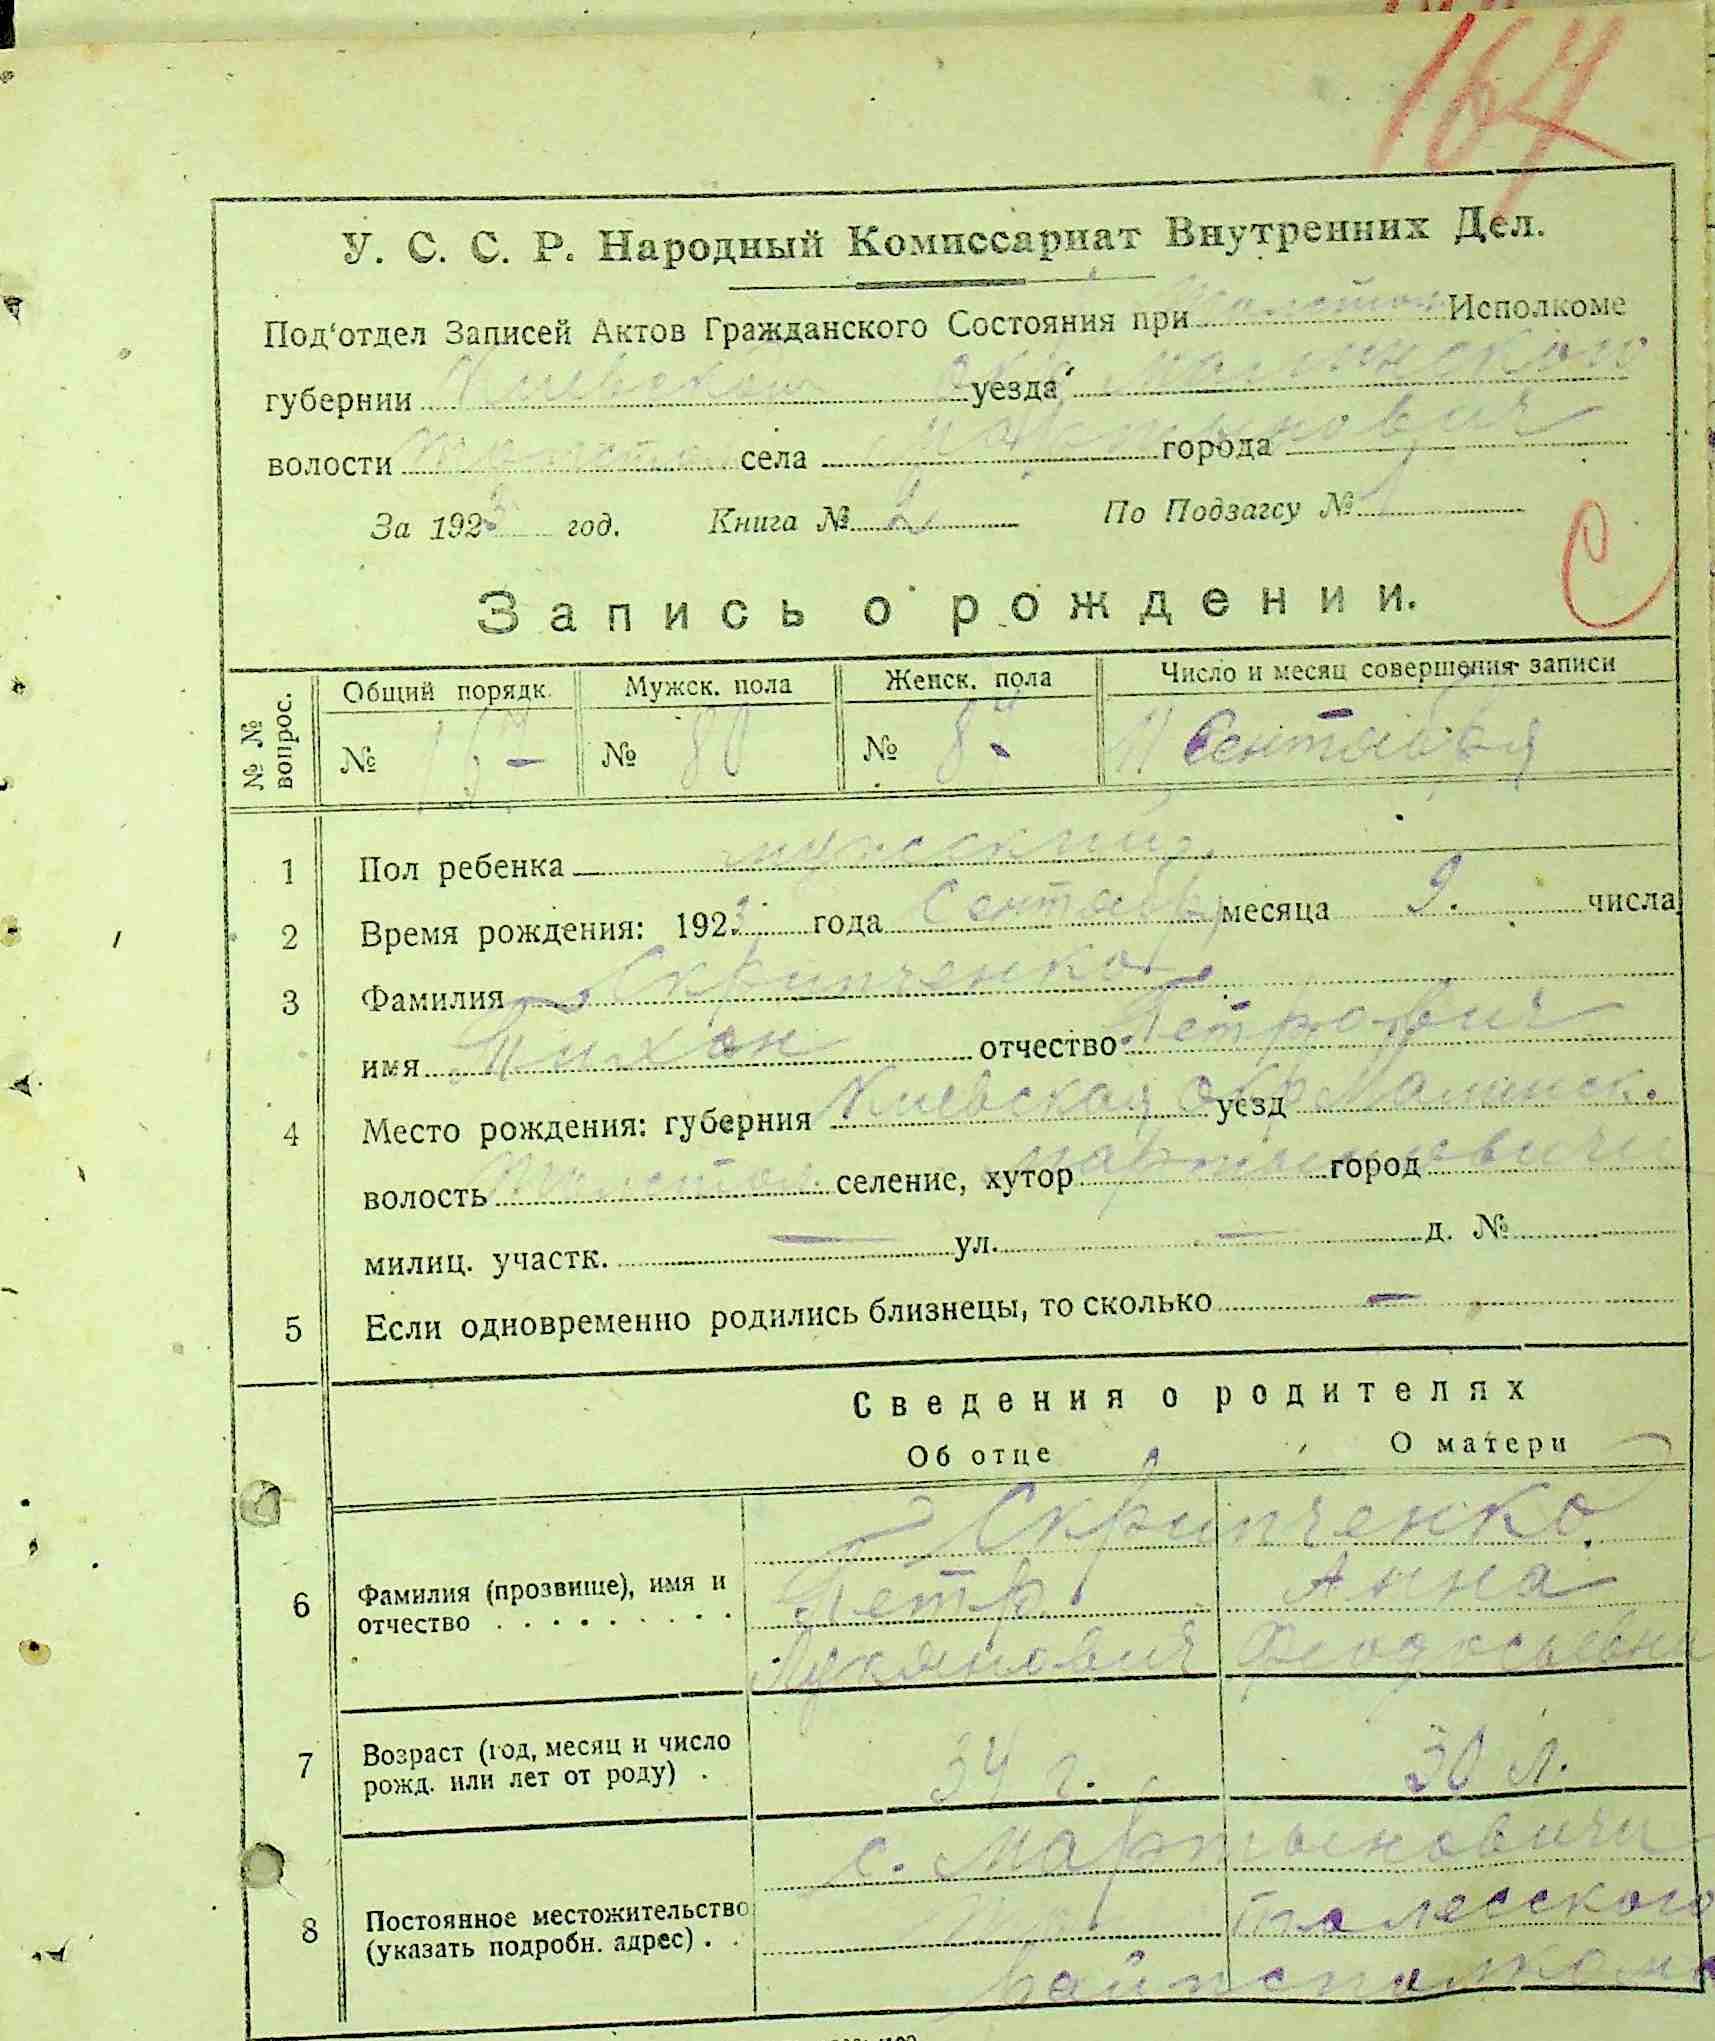 167
У. С. С. Р. Народный Комиссариат Внутренних Дел.
Под‘отдел Записей Актов Гражданского Состояния при Исполкоме
губернии Киевской уезда Малинского
волости села Мартынович города
За 1923 год. Книга № 2 По Подзагсу № 1
С
Запись о рождении.
№ № вопрос. Общий порядк. Мужск. пола Женск. пола Число и месяц совершения записи
№ 167 № 80 № 11 Сентября
1 Пол ребенка мужский
2 Время рождения: 1923 года Сентября месяца 9. числа
3 Фамилия Скрипченко
имя Тихон отчество Петрович
4 Место рождения: губерния Киевская окр уезд Малинск.
волость селение, хутор Мартыновичи город
милиц. участк. — ул. — д. №
5 Если одновременно родились близнецы, то сколько —
Сведения о родителях
Об отце О матери
Скрипченко
6 Фамилия (прозвище), имя и Петр Анна
отчество . . . . . . . . Лукянович
7 Возраст (год, месяц и число
рожд. или лет от роду) . 34 г. 30 л.
с. Мартыновичи
8 Постоянное местожительство
(указать подробн. адрес) . .
Райисполкома